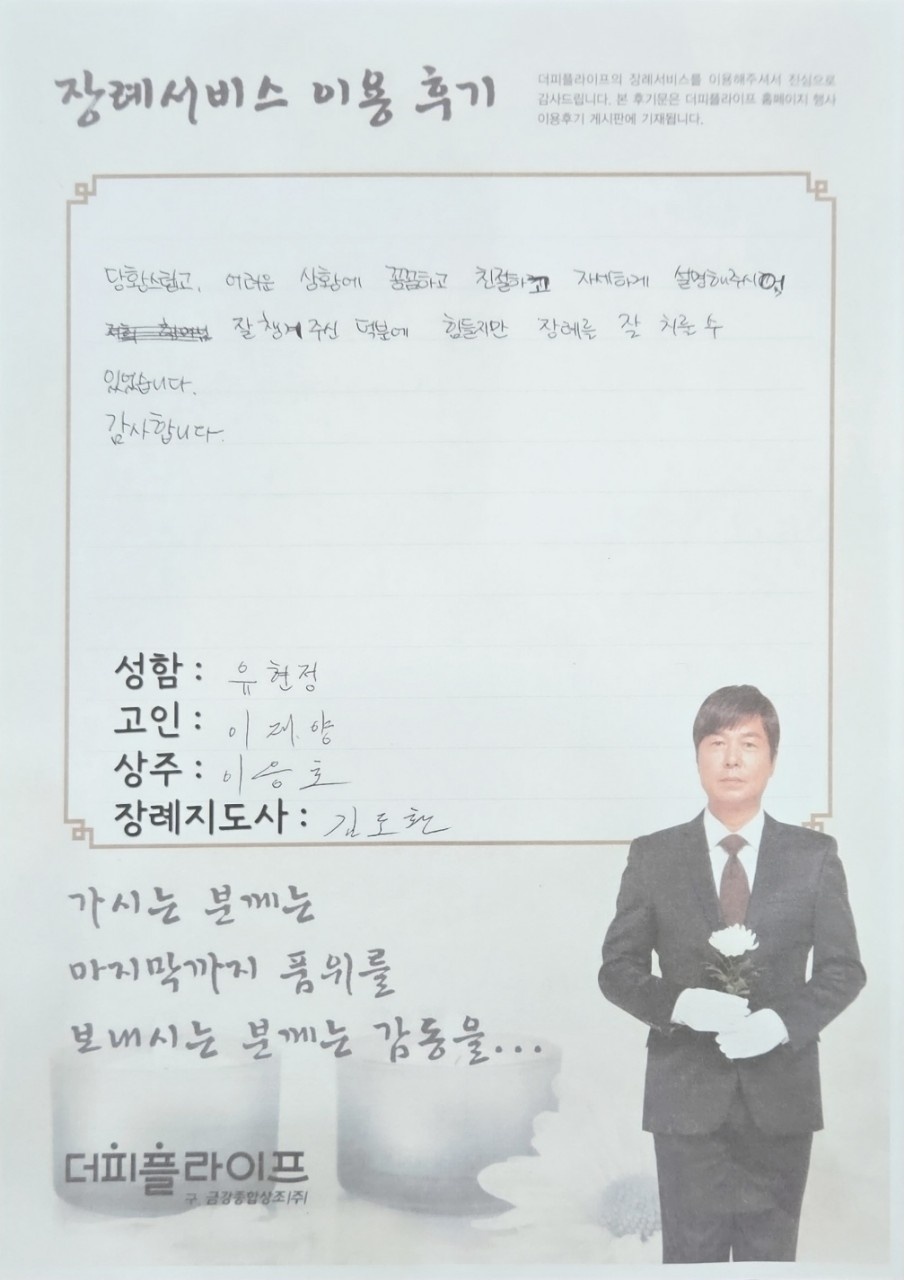 장례서비스 이용 후기
더피플라이프의 장례서비스를 이용해주셔서 진심으로
감사드립니다. 본 후기문은 더피플라이프 홈페이지 행사
이용후기 게시판에 기재됩니다.
당황스럽고, 어려운 상황에 꼼꼼하고 친절하고 자세하게 설명해주시었
잘 챙겨 주신 덕분에 힘들지만 장례를 잘 치룰 수
있었습니다.
감사합니다.
성함 : 유현정
고인 : 이재양
상주 : 이승호
장례지도사 : 김도환
가시는 분께는
마지막까지 품위를
보내시는 분께는 감동을...
더피플라이프
구. 금강종합상조(주)